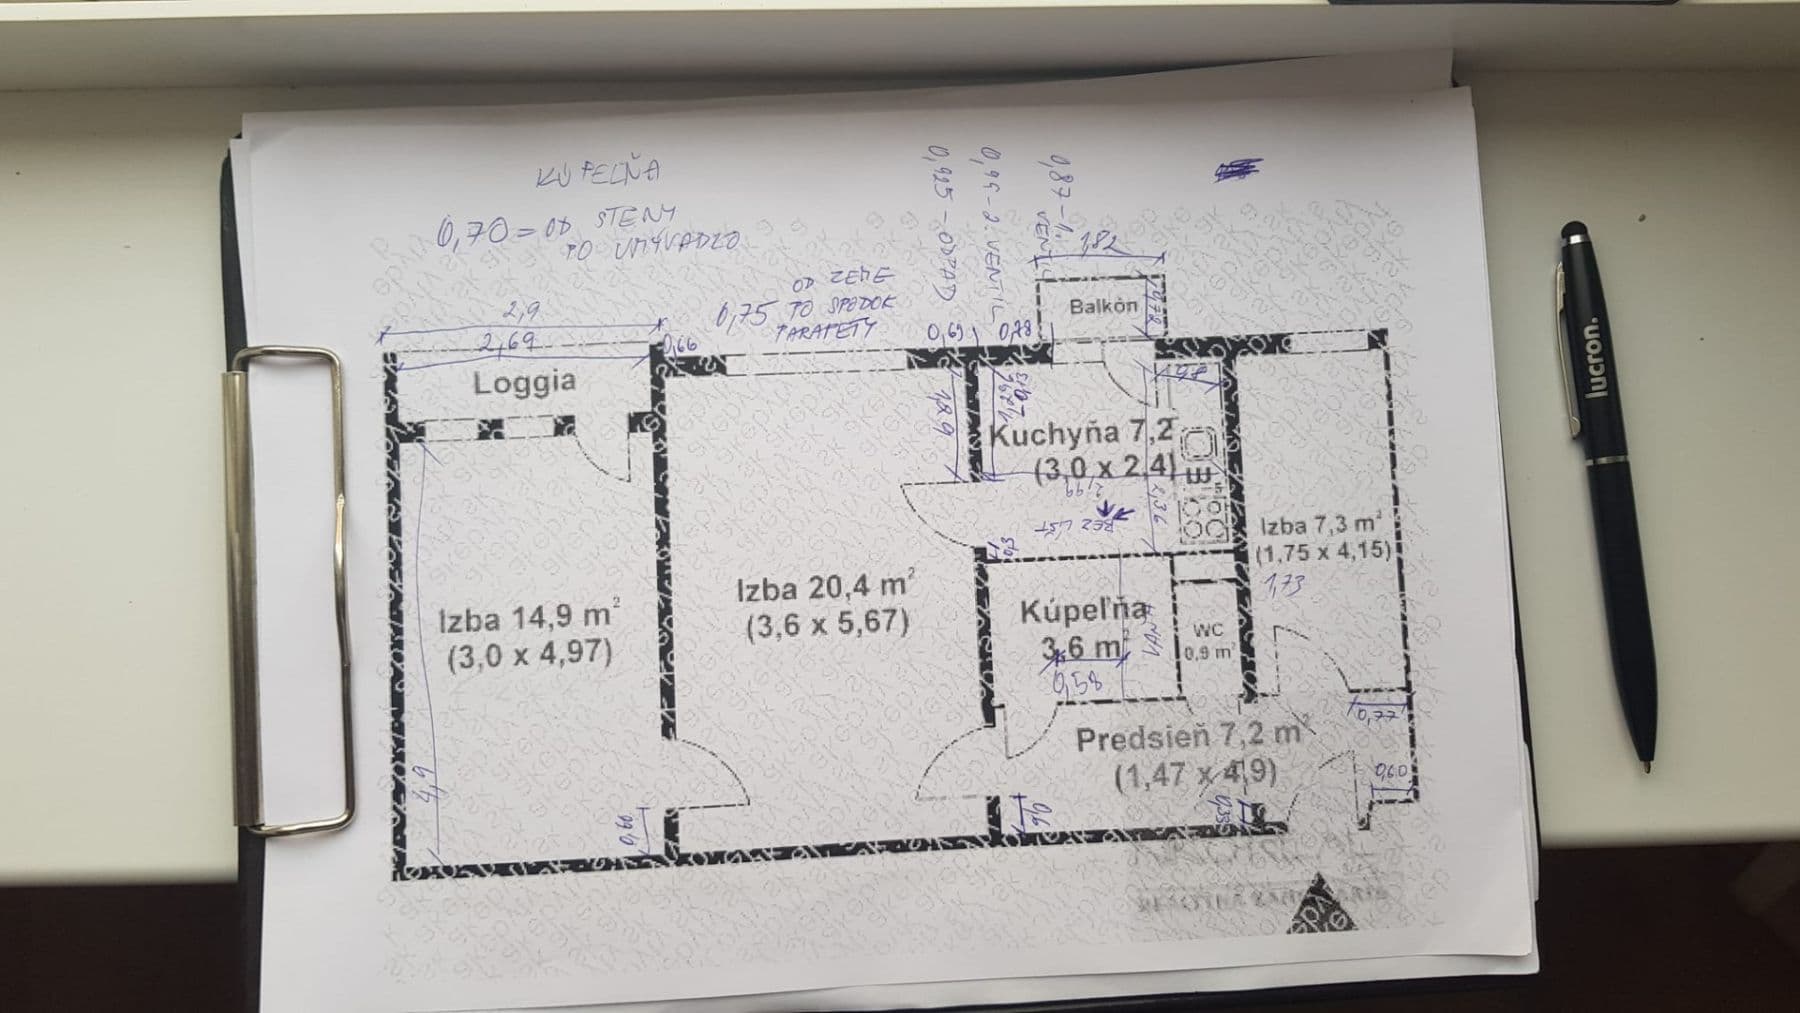 KÚPEĽŇA
0,70 = OD STENY
PO UMÝVADLO
0,925 - ODPAD
0,99 - 2. VENTIL
0,87 - 1. VENTIL
1,82
0,72
Balkón
OD ZEME
0,75 PO SPODOK
PARAPETY
2,9
2,69
0,66
0,69
0,78
Loggia
1,89
98
Kuchyňa 7,2
(3,0 x 2,4)
2,99
2,36
BEZ LÍŠT
0,3
Izba 7,3 m²
(1,75 x 4,15)
1,73
Izba 20,4 m²
(3,6 x 5,67)
Izba 14,9 m²
(3,0 x 4,97)
Kúpeľňa
3,6 m²
0,58
WC
0,9 m²
0,77
Predsieň 7,2 m²
(1,47 x 4,9)
0,60
4,9
0,60
0,6
0,33
REALITNÁ KANCELÁRIA
lucron.